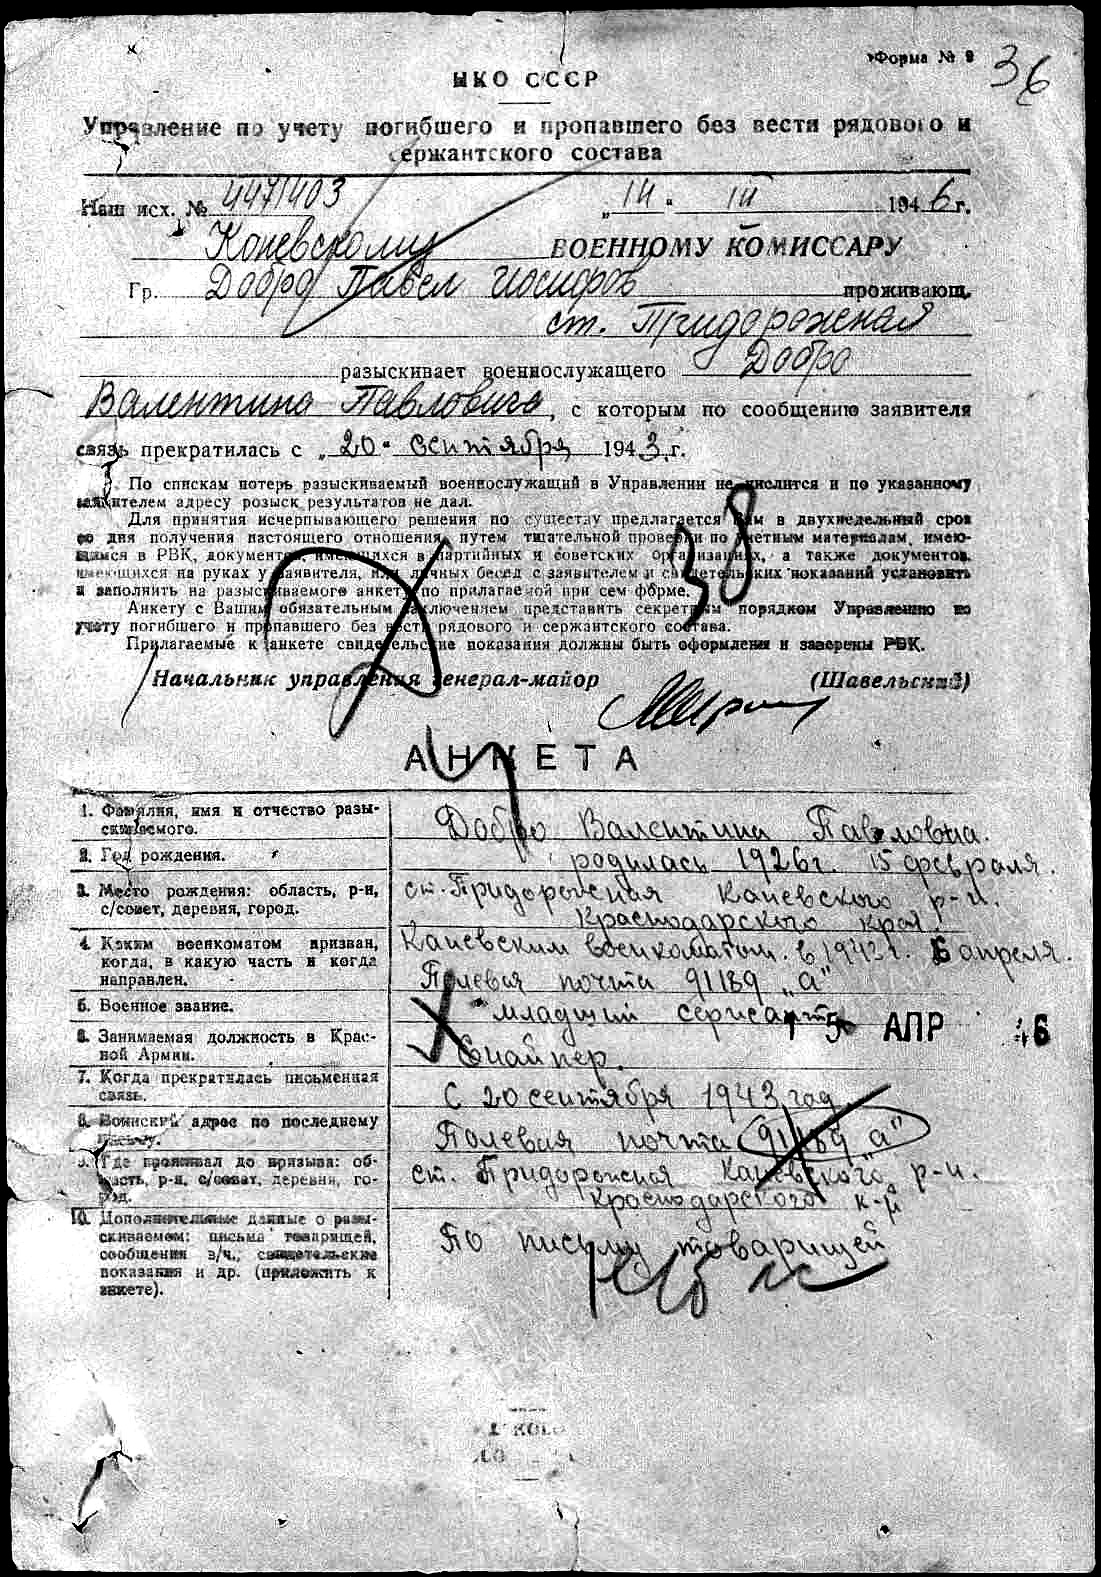 Форма № 9
36
НКО СССР
Управление по учету погибшего и пропавшего без вести рядового и
сержантского состава
Наш исх. № 4471403 „14" III 1946 г.
Каневскому ВОЕННОМУ КОМИССАРУ
Гр. Добро Павел Иосифов проживающ.
ст. Придорожная
разыскивает военнослужащего Добро
Валентина Павловича, с которым по сообщению заявителя
связь прекратилась с „20" сентября 1943 г.
По спискам потерь разыскиваемый военнослужащий в Управлении не числится и по указанному
заявителем адресу розыск результатов не дал.
Для принятия исчерпывающего решения по существу предлагается Вам в двухнедельный срок
со дня получения настоящего отношения, путем тщательной проверки по учетным материалам, имею-
щимся в РВК, документов, имеющихся в партийных и советских организациях, а также документов,
имеющихся на руках у заявителя, или личных бесед с заявителем и свидетельских показаний установить
и заполнить на разыскиваемого анкету по прилагаемой при сем форме.
Анкету с Вашим обязательным заключением представить секретным порядком Управлению по
учету погибшего и пропавшего без вести рядового и сержантского состава.
Прилагаемые к анкете свидетельские показания должны быть оформлены и заверены РВК.
38
Начальник управления генерал-майор (Шавельский)
АНКЕТА
1. Фамилия, имя и отчество разы-
скиваемого.
Добро Валентина Павловна.
2. Год рождения.
родилась 1926 г. 15 февраля.
3. Место рождения: область, р-н,
с/совет, деревня, город.
ст. Придорожная Каневского р-н.
Краснодарского края.
4. Каким военкоматом призван,
когда, в какую часть и когда
направлен.
Каневским военкоматом. в 1943 г. 6 апреля.
Полевая почта 91189 „а"
5. Военное звание.
младший сержант
15 АПР 46
6. Занимаемая должность в Крас-
ной Армии.
Снайпер.
7. Когда прекратилась письменная
связь.
С 20 сентября 1943 год.
8. Воинский адрес по последнему
письму.
Полевая почта 91189 „а"
9. Где проживал до призыва: об-
ласть, р-н, с/совет, деревня, го-
род.
ст. Придорожная Каневского р-н.
Краснодарского к-й
10. Дополнительные данные о разы-
скиваемом: письма товарищей,
сообщения в/ч., свидетельские
показания и др. (приложить к
анкете).
По письму товарищей